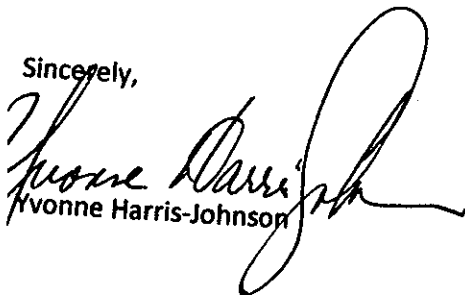 Sincerely,
Yvonne Harris John
Yvonne Harris-Johnson